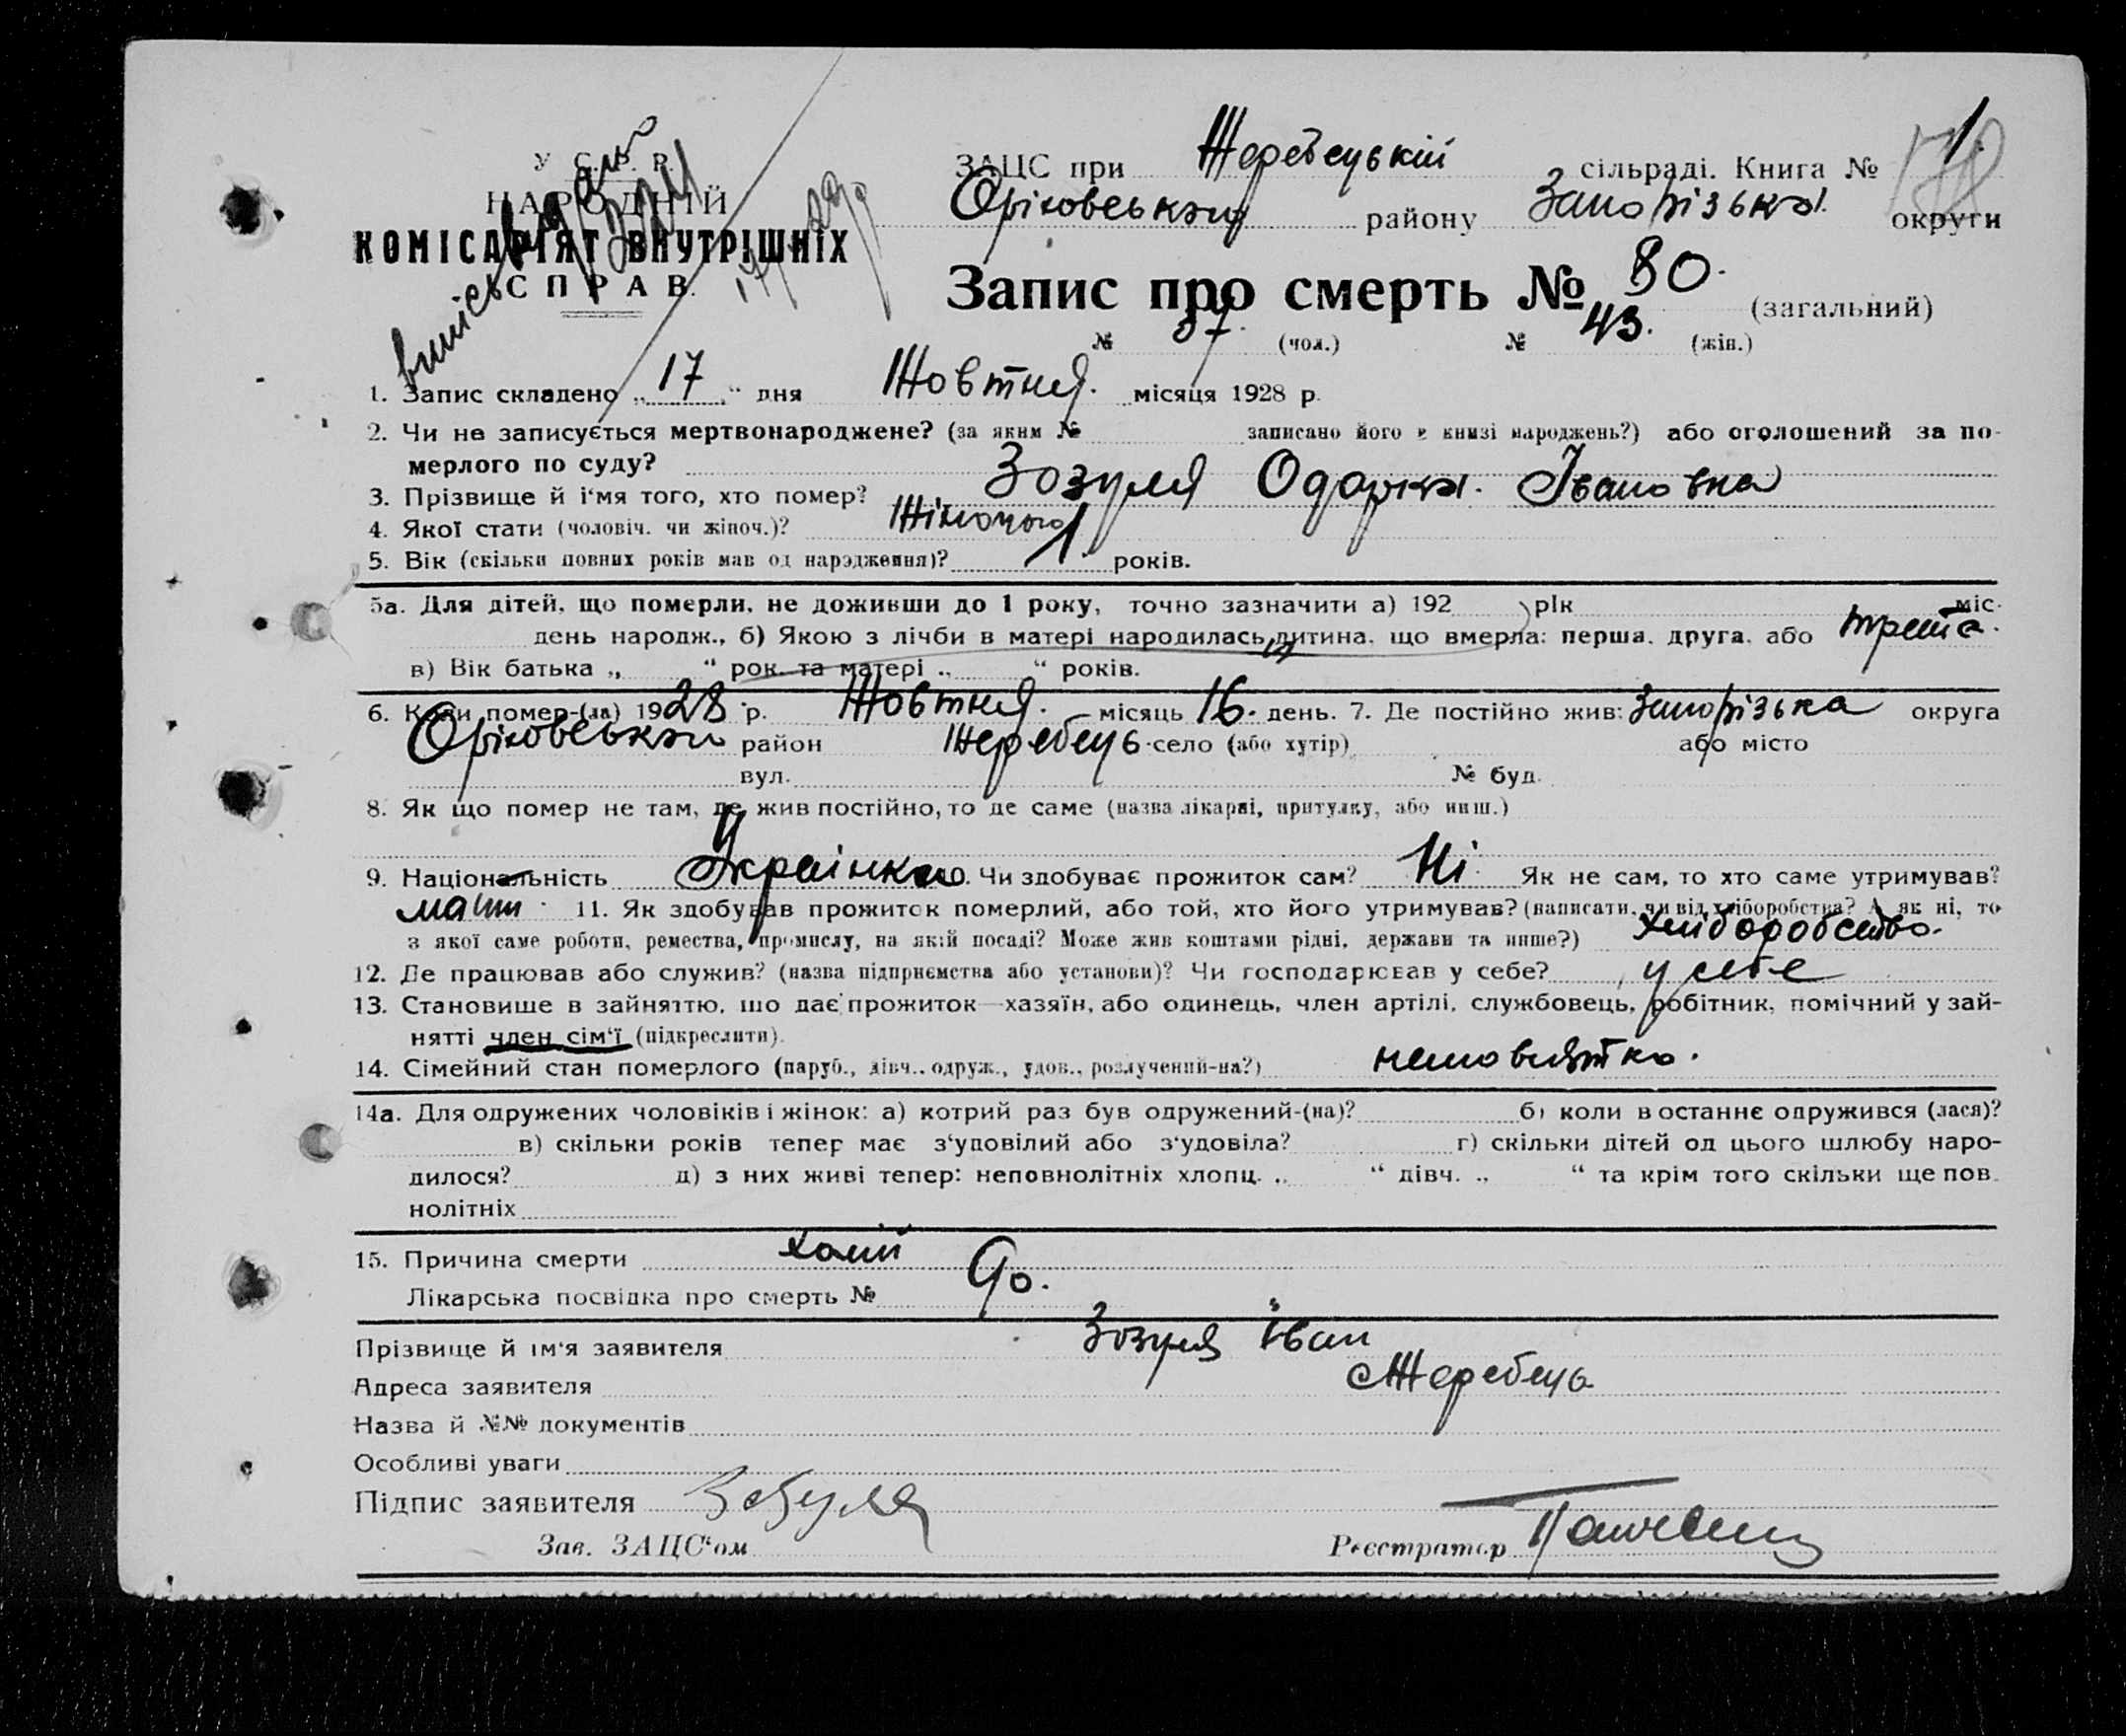 У. С. Р. Р.
НАРОДНІЙ
КОМІСАРІЯТ ВНУТРІШНІХ
СПРАВ.
ЗАЦС при Жеребецькій сільраді. Книга № 1.
Оріховського району Запорізька округи
Запис про смерть № 80. (загальний)
№ 37. (чол.) № 43. (жін.)
1. Запис складено „17“ дня Жовтня. місяця 1928 р.
2. Чи не записується мертвонароджене? (за яким № записано його в книзі народжень?) або оголошений за по-
мерлого по суду?
3. Прізвище й і'мя того, хто помер? Зозуля Одарка. Івановна
4. Якої стати (чоловіч. чи жіноч.)? Жіночого
5. Вік (скільки повних років мав од народження)? 1. років.
5а. Для дітей, що померли, не доживши до 1 року, точно зазначити а) 192 рік міс.
день народж., б) Якою з лічби в матері народилась дитина, що вмерла: перша, друга, або третя.
в) Вік батька „ “ рок. та матері „ “ років.
6. Коли помер-(ла) 1928 р. Жовтня. місяць 16. день. 7. Де постійно жив: Запорізька округа
Оріховський район Жеребець село (або хутір) або місто
вул. № буд.
8. Як що помер не там, де жив постійно, то де саме (назва лікарні, притулку, або инш.)
9. Національність Українка. Чи здобуває прожиток сам? Ні. Як не сам, то хто саме утримував?
мати. 11. Як здобував прожиток померлий, або той, хто його утримував? (написати, чи від хліборобства? А як ні, то
з якої саме роботи, ремества, промислу, на якій посаді? Може жив коштами рідні, держави та инше?) хліборобство.
12. Де працював або служив? (назва підприємства або установи)? Чи господарював у себе? у себе
13. Становище в зайняттю, що дає прожиток—хазяїн, або одинець, член артілі, службовець, робітник, помічний у зай-
нятті член сім'ї (підкреслити).
14. Сімейний стан померлого (паруб., дівч., одруж., удов., розлучений-на?) немовлятко.
14а. Для одружених чоловіків і жінок: а) котрий раз був одружений-(на)? б) коли в останнє одружився (лася)?
в) скільки років тепер має з'уповілий або з'удовіла? г) скільки дітей од цього шлюбу наро-
дилося? д) з них живі тепер: неповнолітніх хлопц. „ “ дівч. „ “ та крім того скільки ще пов.
нолітніх
15. Причина смерти
Лікарська посвідка про смерть №
Прізвище й ім'я заявителя Зозуля Іван
Адреса заявителя с Жеребець
Назва й №№ документів
Особливі уваги
Підпис заявителя Зозуля
Зав. ЗАЦС“ом Реєстратор